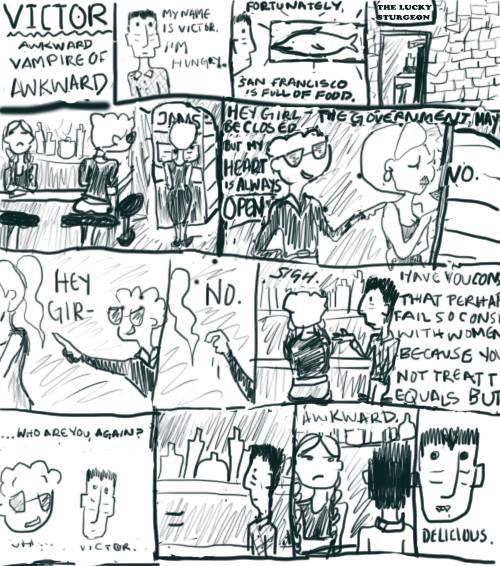 VICTOR
AWKWARD
VAMPIRE OF
AWKWARD
MY NAME
IS VICTOR.
I'M
HUNGRY.
FORTUNATELY,
SAN FRANCISCO
IS FULL OF FOOD.
THE LUCKY
STURGEON
HEY GIRL - THE GOVERNMENT MAY
BE CLOSED
BUT MY
HEART
IS ALWAYS
OPEN
NO.
HEY
GIR-
NO.
SIGH.
HAVE YOU CONS
THAT PERHAP
FAIL SO CONSI
WITH WOMEN
BECAUSE YOU
NOT TREAT T
EQUALS BUT
...WHO ARE YOU, AGAIN?
UH...
VICTOR.
AWKWARD.
DELICIOUS.